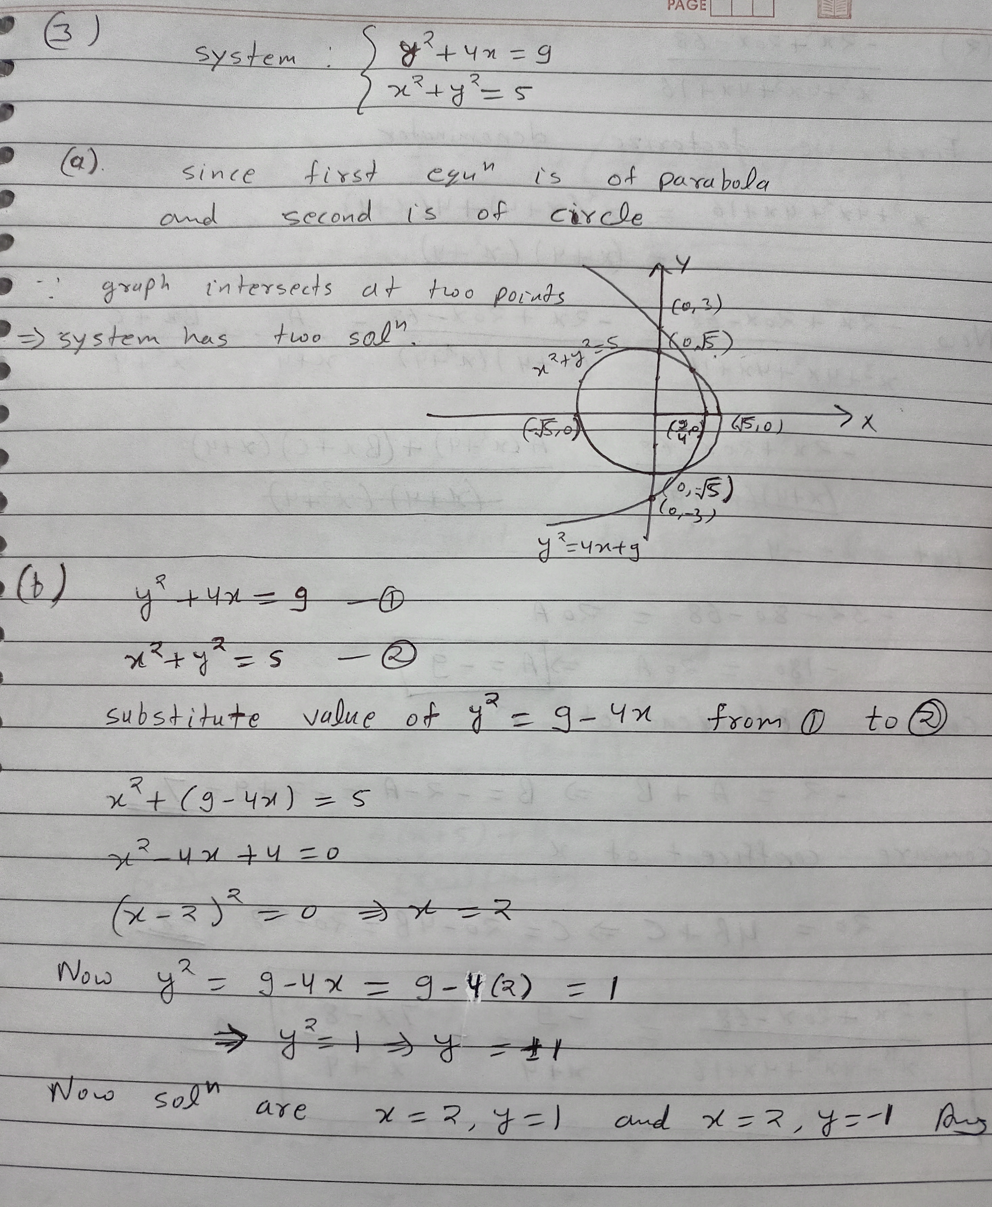 PAGE
(3)
system : { y²+4x = 9
x²+y² = 5
(a). since first equⁿ is of parabola
and second is of circle
∵ graph intersects at two points
⇒ system has two solⁿ.
Y
(0,3)
(0,√5)
x²+y²=5
X
(-√5,0)
(9/4,0)
(√5,0)
(0,-√5)
(0,-3)
y²=4x+9
(b) y² + 4x = 9 —①
x²+y² = 5 —②
substitute value of y² = 9-4x from ① to ②
x²+(9-4x) = 5
x²-4x+4=0
(x-2)² = 0 ⇒ x = 2
Now y² = 9-4x = 9-4(2) = 1
⇒ y²=1 ⇒ y = ±1
Now solⁿ are x=2, y=1 and x=2, y=-1 Ans